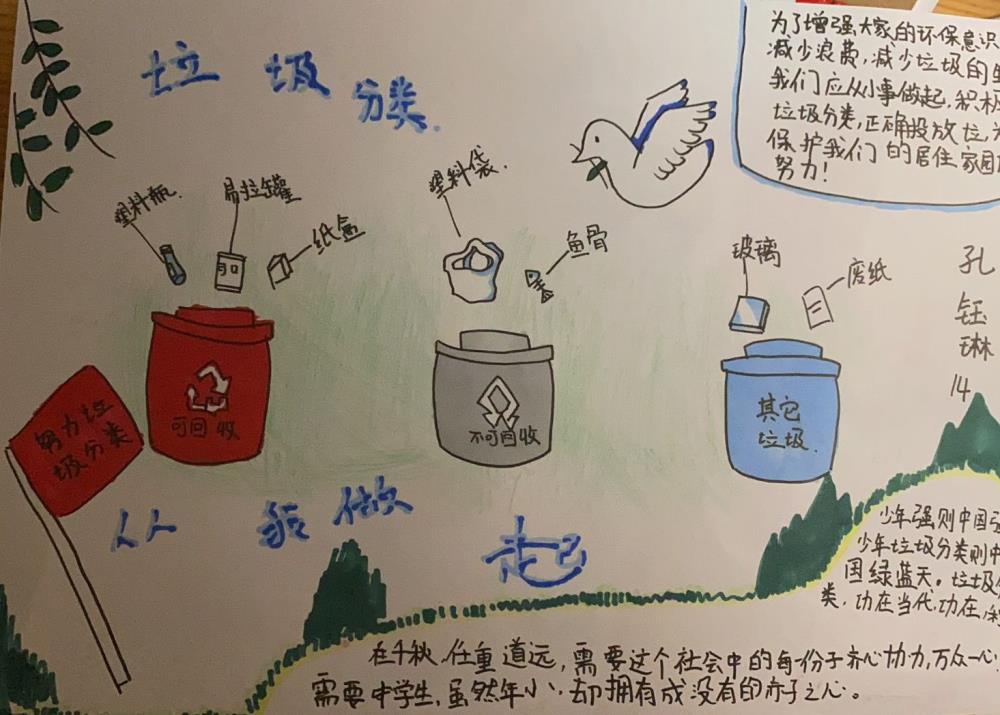 垃圾
分类.
为了增强大家的环保意识
减少浪费,减少垃圾的
我们应从小事做起,积极
垃圾分类,正确投放垃
保护我们的居住家园
努力!
塑料瓶.
易拉罐
纸盒
塑料袋.
鱼骨
玻璃
废纸
孔
钰
琳
14
可回收
不可回收
其它
垃圾.
努力垃
圾分类
从我做
起
少年强则中国强
少年垃圾分类则中
国绿蓝天。垃圾
类,功在当代,功在,
在千秋,任重道远,需要这个社会中的每份子齐心协力,万众一心
需要中学生,虽然年小,却拥有成没有的赤子之心。